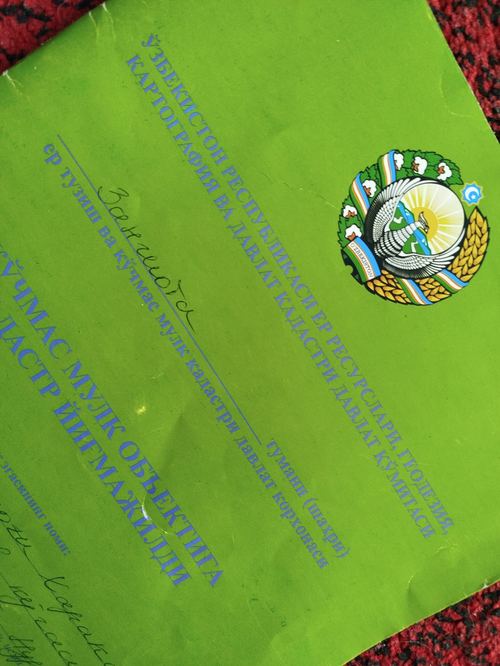 ЎЗБЕКИСТОН РЕСПУБЛИКАСИ ЕР РЕСУРСЛАРИ, ГЕОДЕЗИЯ,
КАРТОГРАФИЯ ВА ДАВЛАТ КАДАСТРИ ДАВЛАТ ҚЎМИТАСИ
Зангиота тумани (шаҳри)
ер тузиш ва кўчмас мулк кадастри давлат корхонаси
КЎЧМАС МУЛК ОБЪЕКТИГА
ДАСТР ЙИҒМАЖИЛДИ
эгасининг номи: